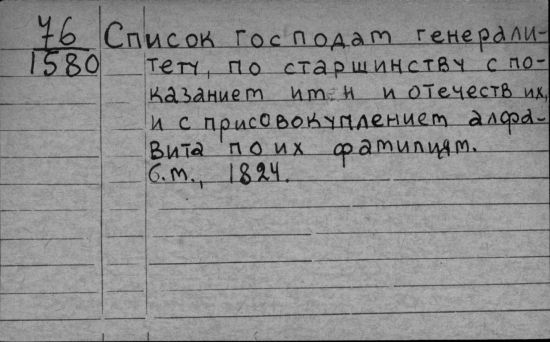 76 Список господам генерали-
1580 тету, по старшинству с по-
казанием имен и отечеств их,
и с присовокуплением алфа-
вита по их фамилиям.
б.м., 1824.